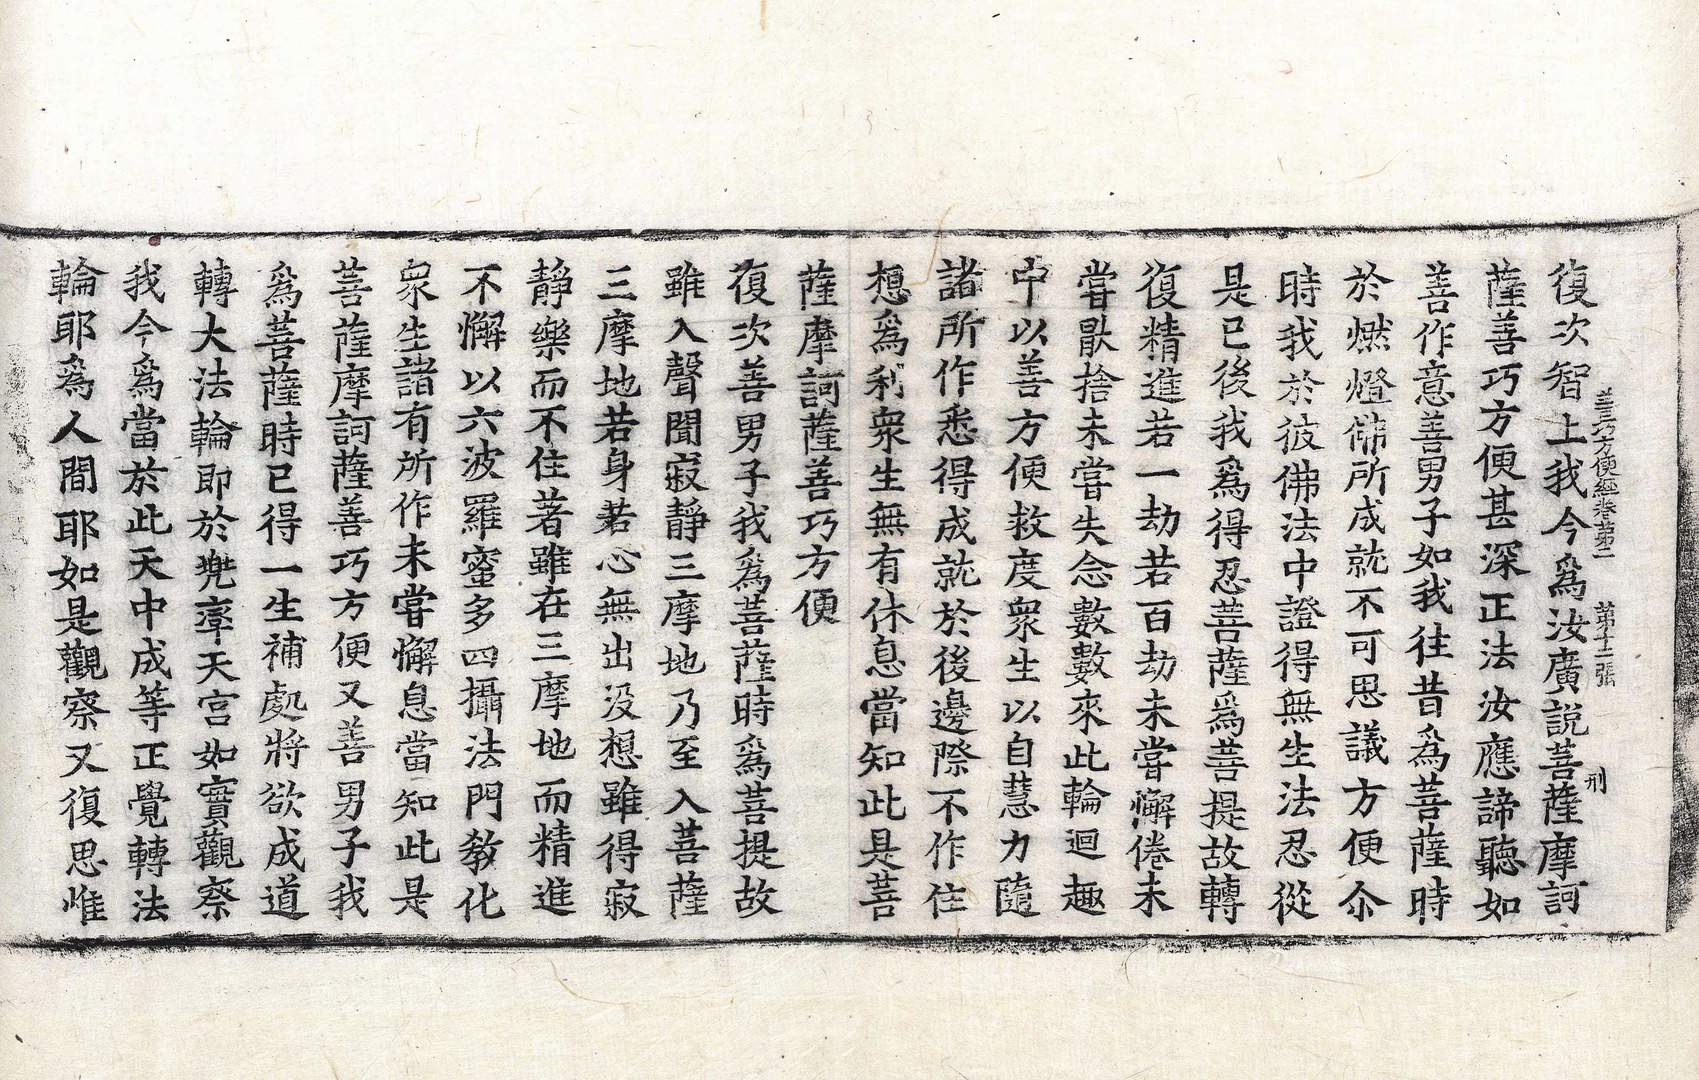 善巧方便經卷第二 第十二張 刑
復次智上我今爲汝廣說菩薩摩訶
薩善巧方便甚深正法汝應諦聽如
善作意善男子如我往昔爲菩薩時
於燃燈佛所成就不可思議方便尒
時我於彼佛法中證得無生法忍從
是已後我爲得忍菩薩爲菩提故轉
復精進若一劫若百劫未嘗懈倦未
嘗猒捨未嘗失念數數來此輪迴趣
中以善方便救度衆生以自慧力隨
諸所作悉得成就於後邊際不作住
想爲利衆生無有休息當知此是菩
薩摩訶薩善巧方便
復次善男子我爲菩薩時爲菩提故
雖入聲聞寂靜三摩地乃至入菩薩
三摩地若身若心無出没想雖得寂
靜樂而不住著雖在三摩地而精進
不懈以六波羅蜜多四攝法門教化
衆生諸有所作未嘗懈息當知此是
菩薩摩訶薩善巧方便又善男子我
爲菩薩時已得一生補處將欲成道
轉大法輪即於兠率天宮如實觀察
我今爲當於此天中成等正覺轉法
輪耶爲人間耶如是觀察又復思惟